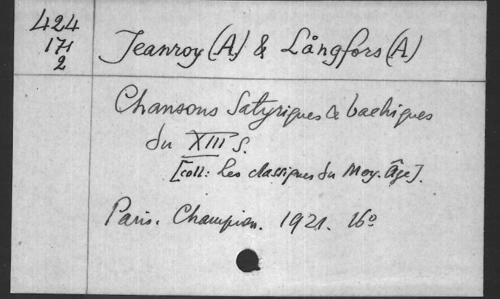 424
171
2
Jeanroy (A) & Långfors (A)
Chansons Satyriques & bachiques
du XIII s.
[coll: les classiques du Moy. Âge].
Paris. Champion. 1921. 16º